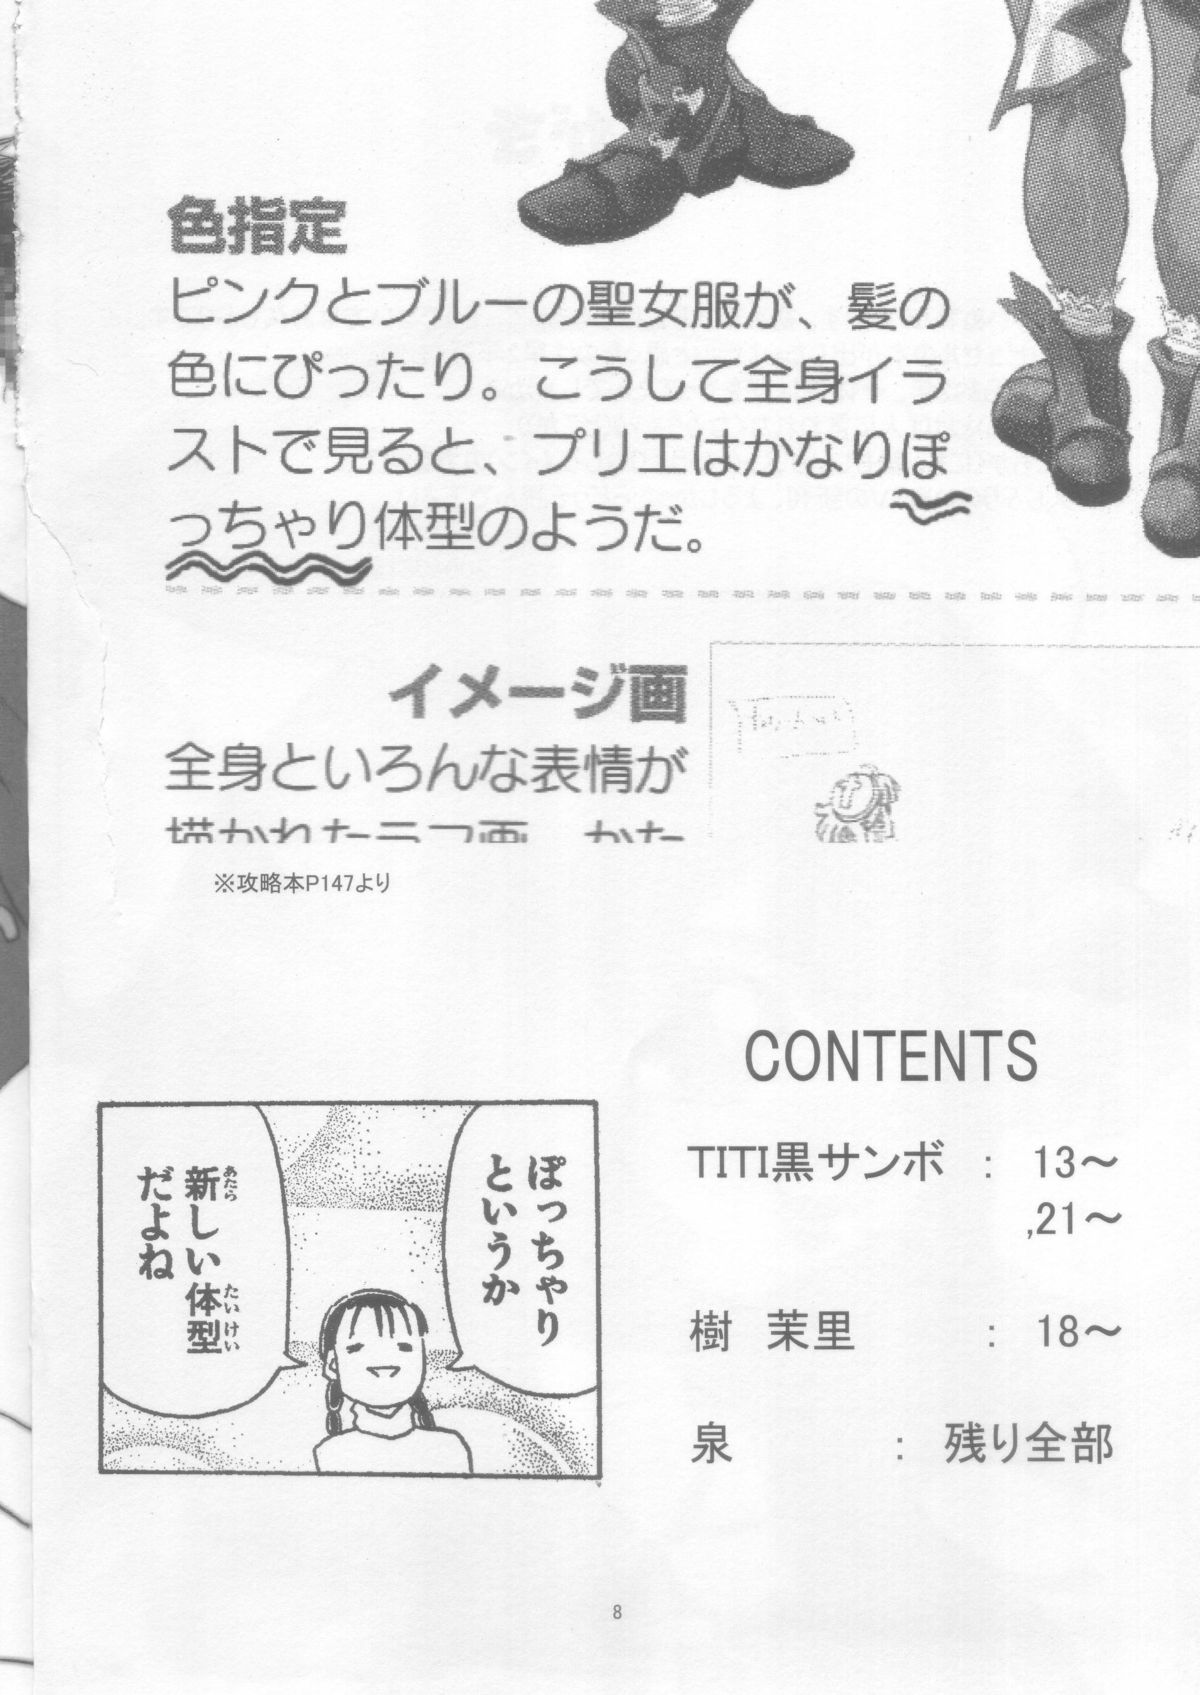 色指定
ピンクとブルーの聖女服が、髪の
色にぴったり。こうして全身イラ
ストで見ると、プリエはかなりぽ
っちゃり体型のようだ。
イメージ画
全身といろんな表情が
描かれたラフ画。かた
※攻略本P147より
CONTENTS
TITI黒サンボ : 13～
,21～
樹 茉里 : 18～
泉 : 残り全部
ぽっちゃり
というか
新しい体型
あたら たいけい
だよね
8